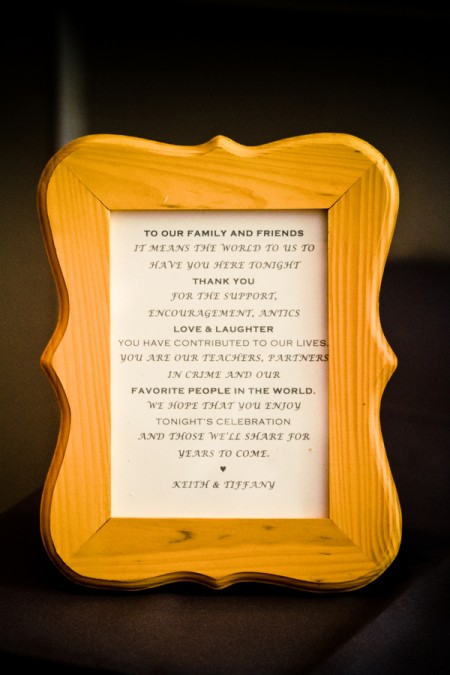 TO OUR FAMILY AND FRIENDS
IT MEANS THE WORLD TO US TO
HAVE YOU HERE TONIGHT
THANK YOU
FOR THE SUPPORT,
ENCOURAGEMENT, ANTICS
LOVE & LAUGHTER
YOU HAVE CONTRIBUTED TO OUR LIVES.
YOU ARE OUR TEACHERS, PARTNERS
IN CRIME AND OUR
FAVORITE PEOPLE IN THE WORLD.
WE HOPE THAT YOU ENJOY
TONIGHT'S CELEBRATION
AND THOSE WE'LL SHARE FOR
YEARS TO COME.
♥
KEITH & TIFFANY